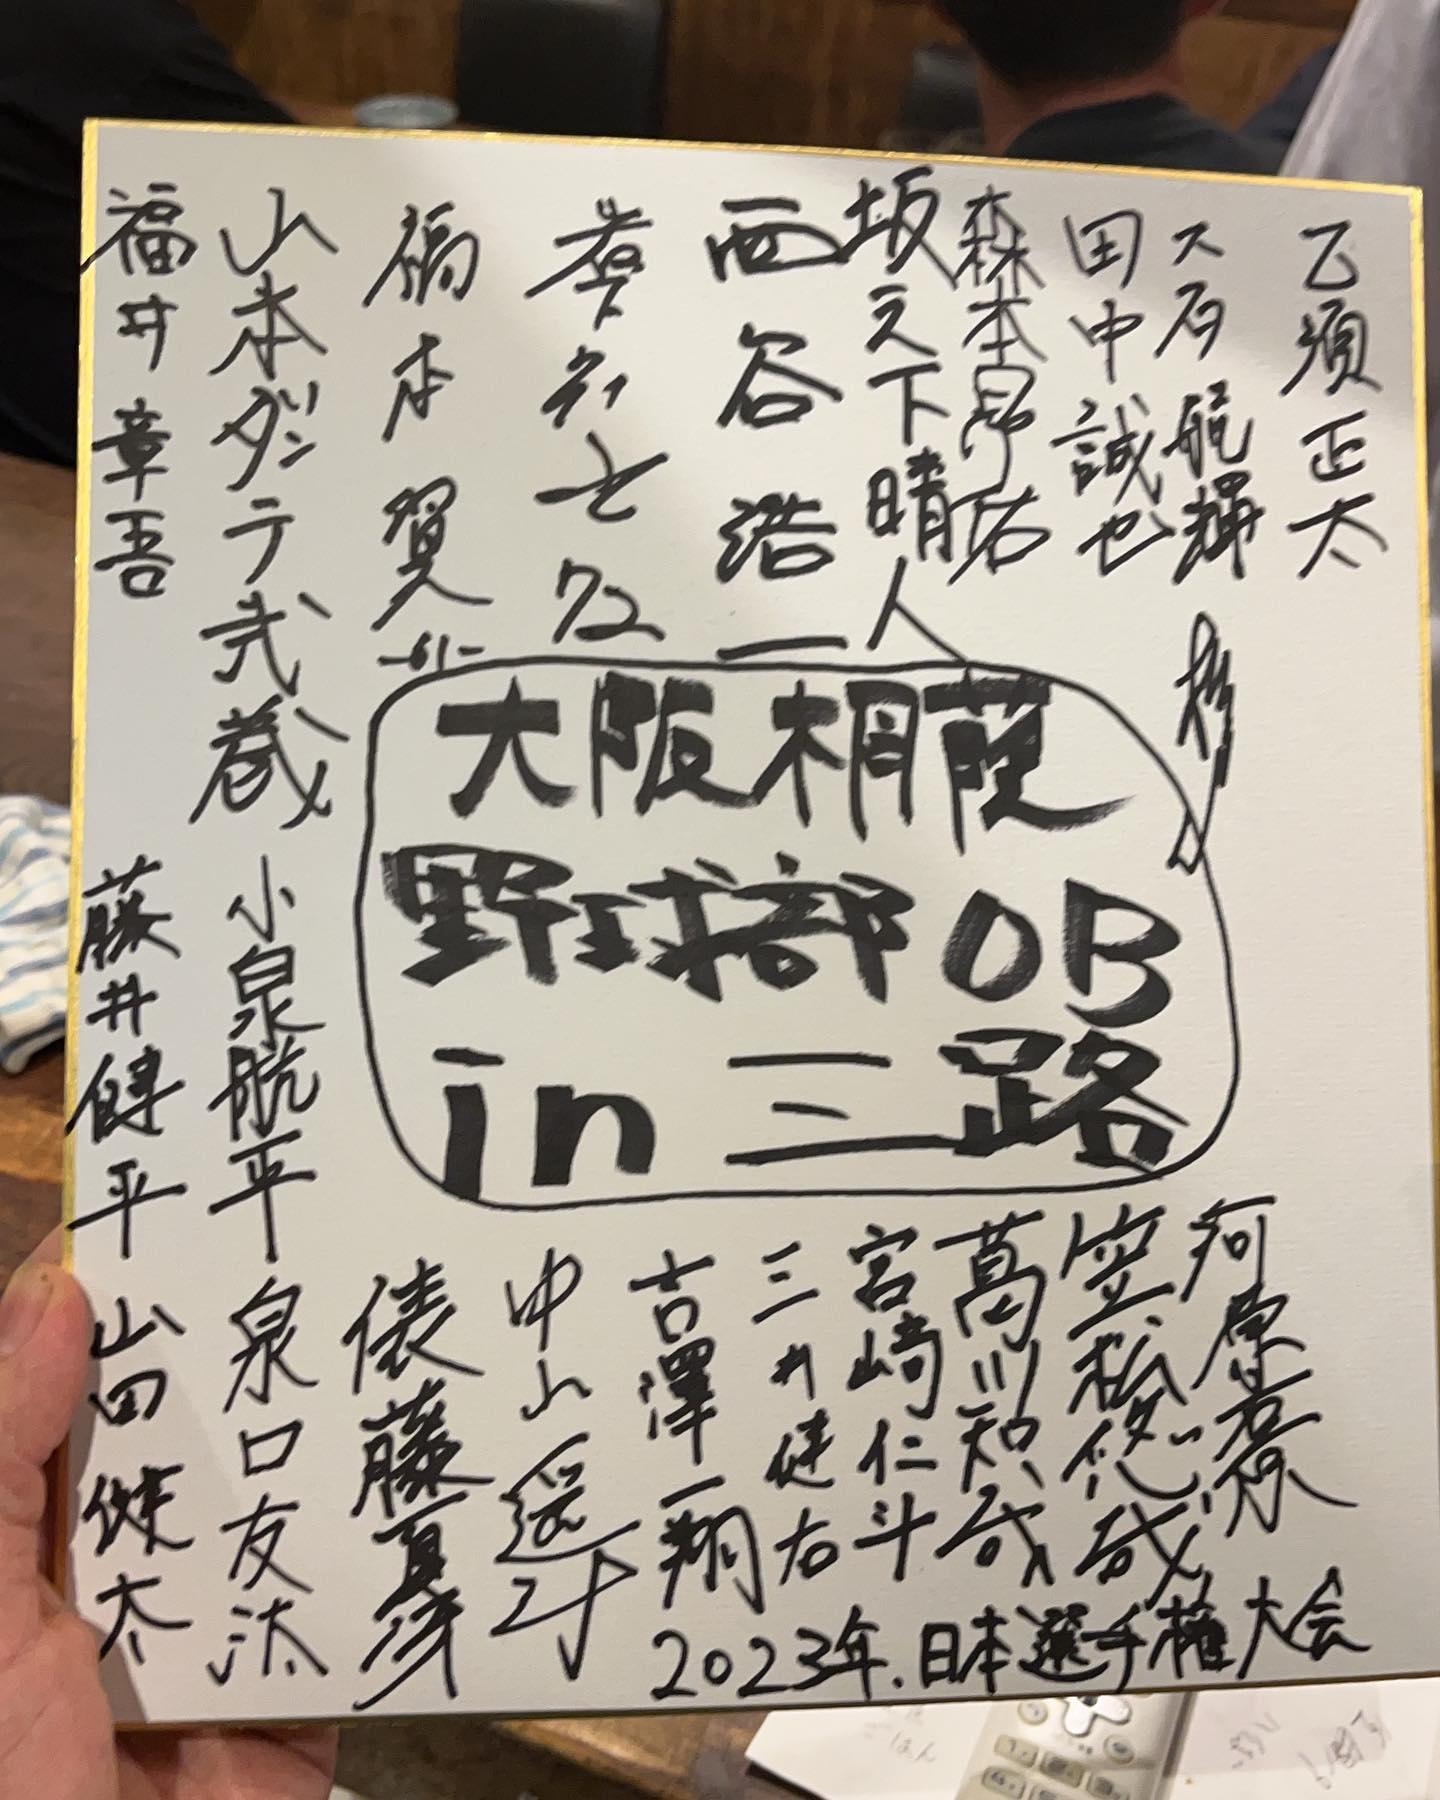 乙須正太
大石航輝
田中誠也
森本昂佑
坂之下晴人
西谷浩一
72
橋本賢
-61-
山本ダンテ武蔵
福井章吾
大阪桐蔭
野球部OB
in三路
河原君依
笠松悠哉
葛川知哉
宮﨑仁斗
三井健右
吉澤一翔
中山遥斗
俵藤夏冴
小泉航平
泉口友汰
藤井健平
山田健太
2023年.日本選手権大会